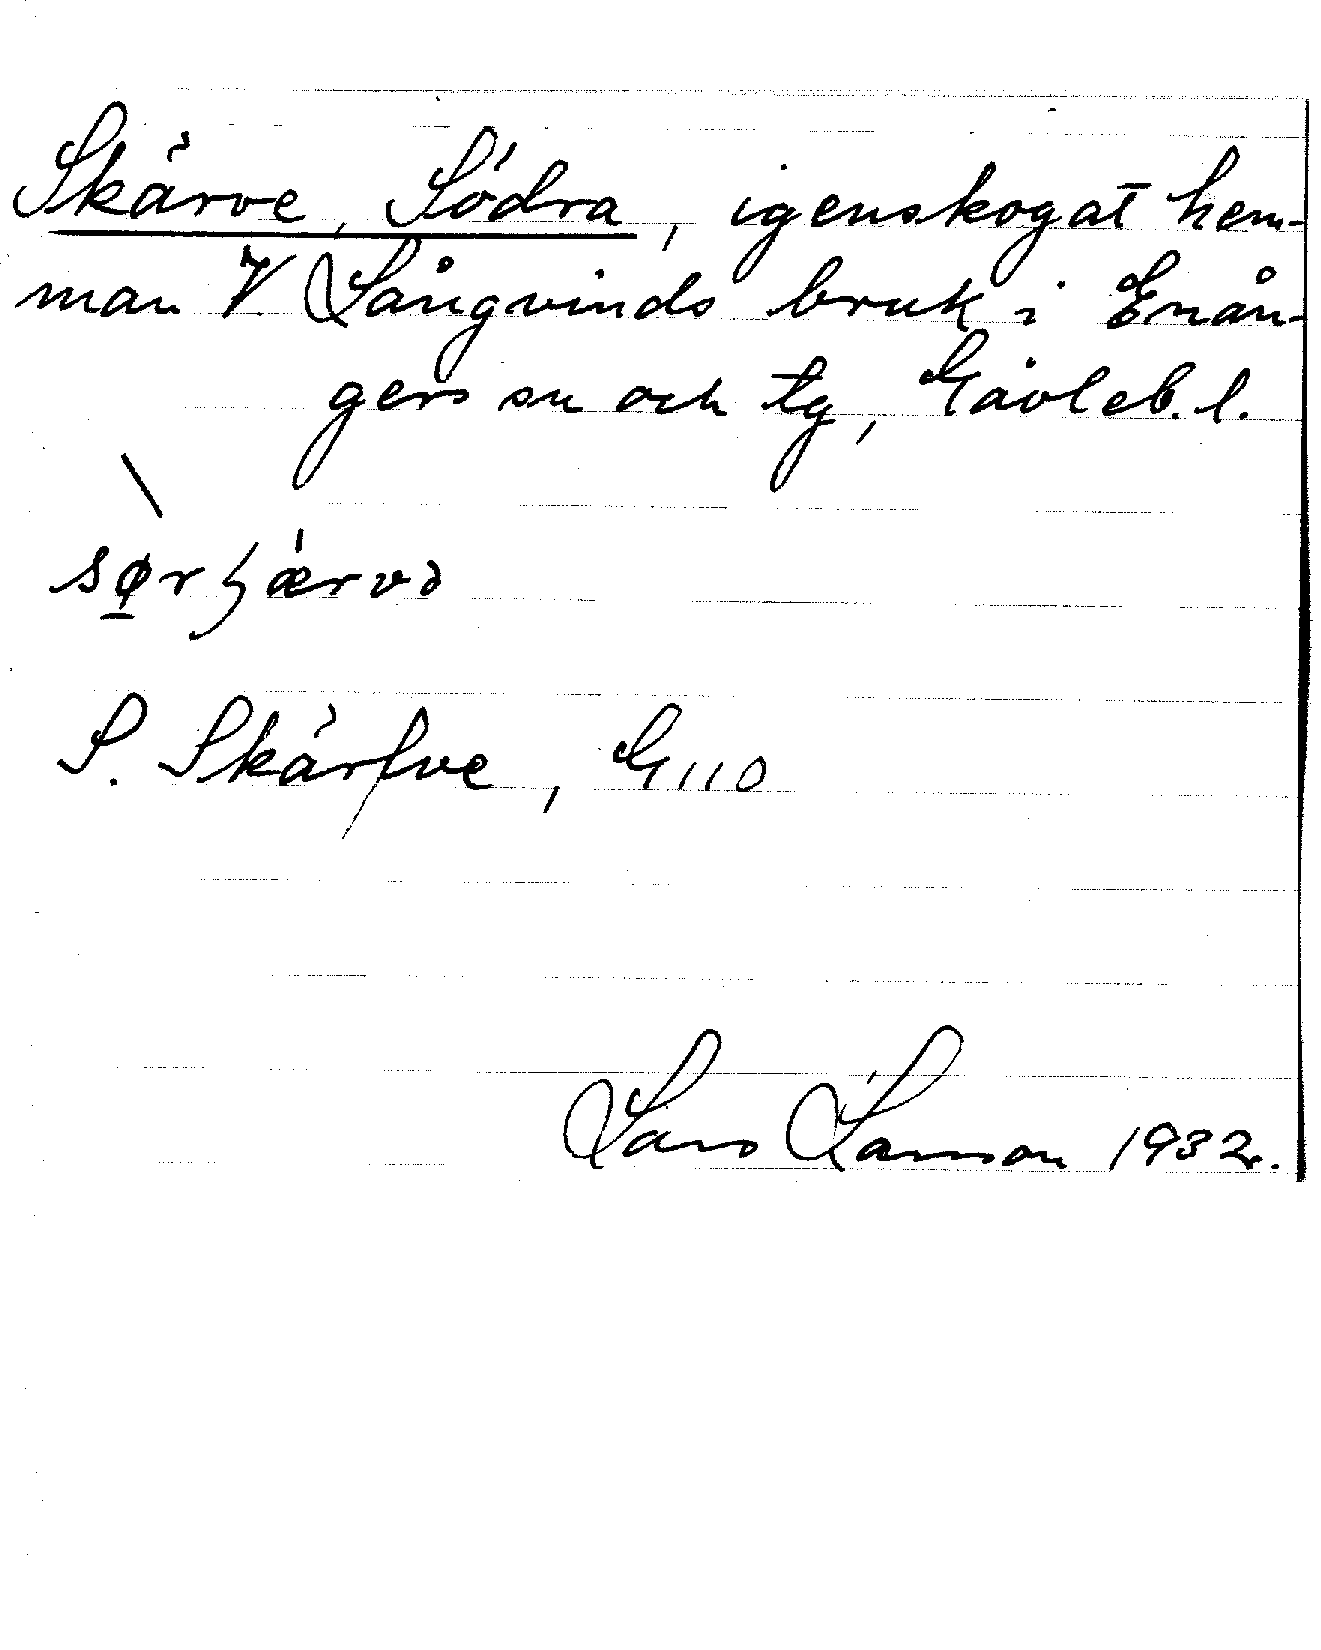 Skärve, Södra, igenskogat hem-
man V Långvinds bruk i Enån-
gers sn och tg, Gävleb. l.
S. Skärfve, G 110
Lars Larsson 1932.